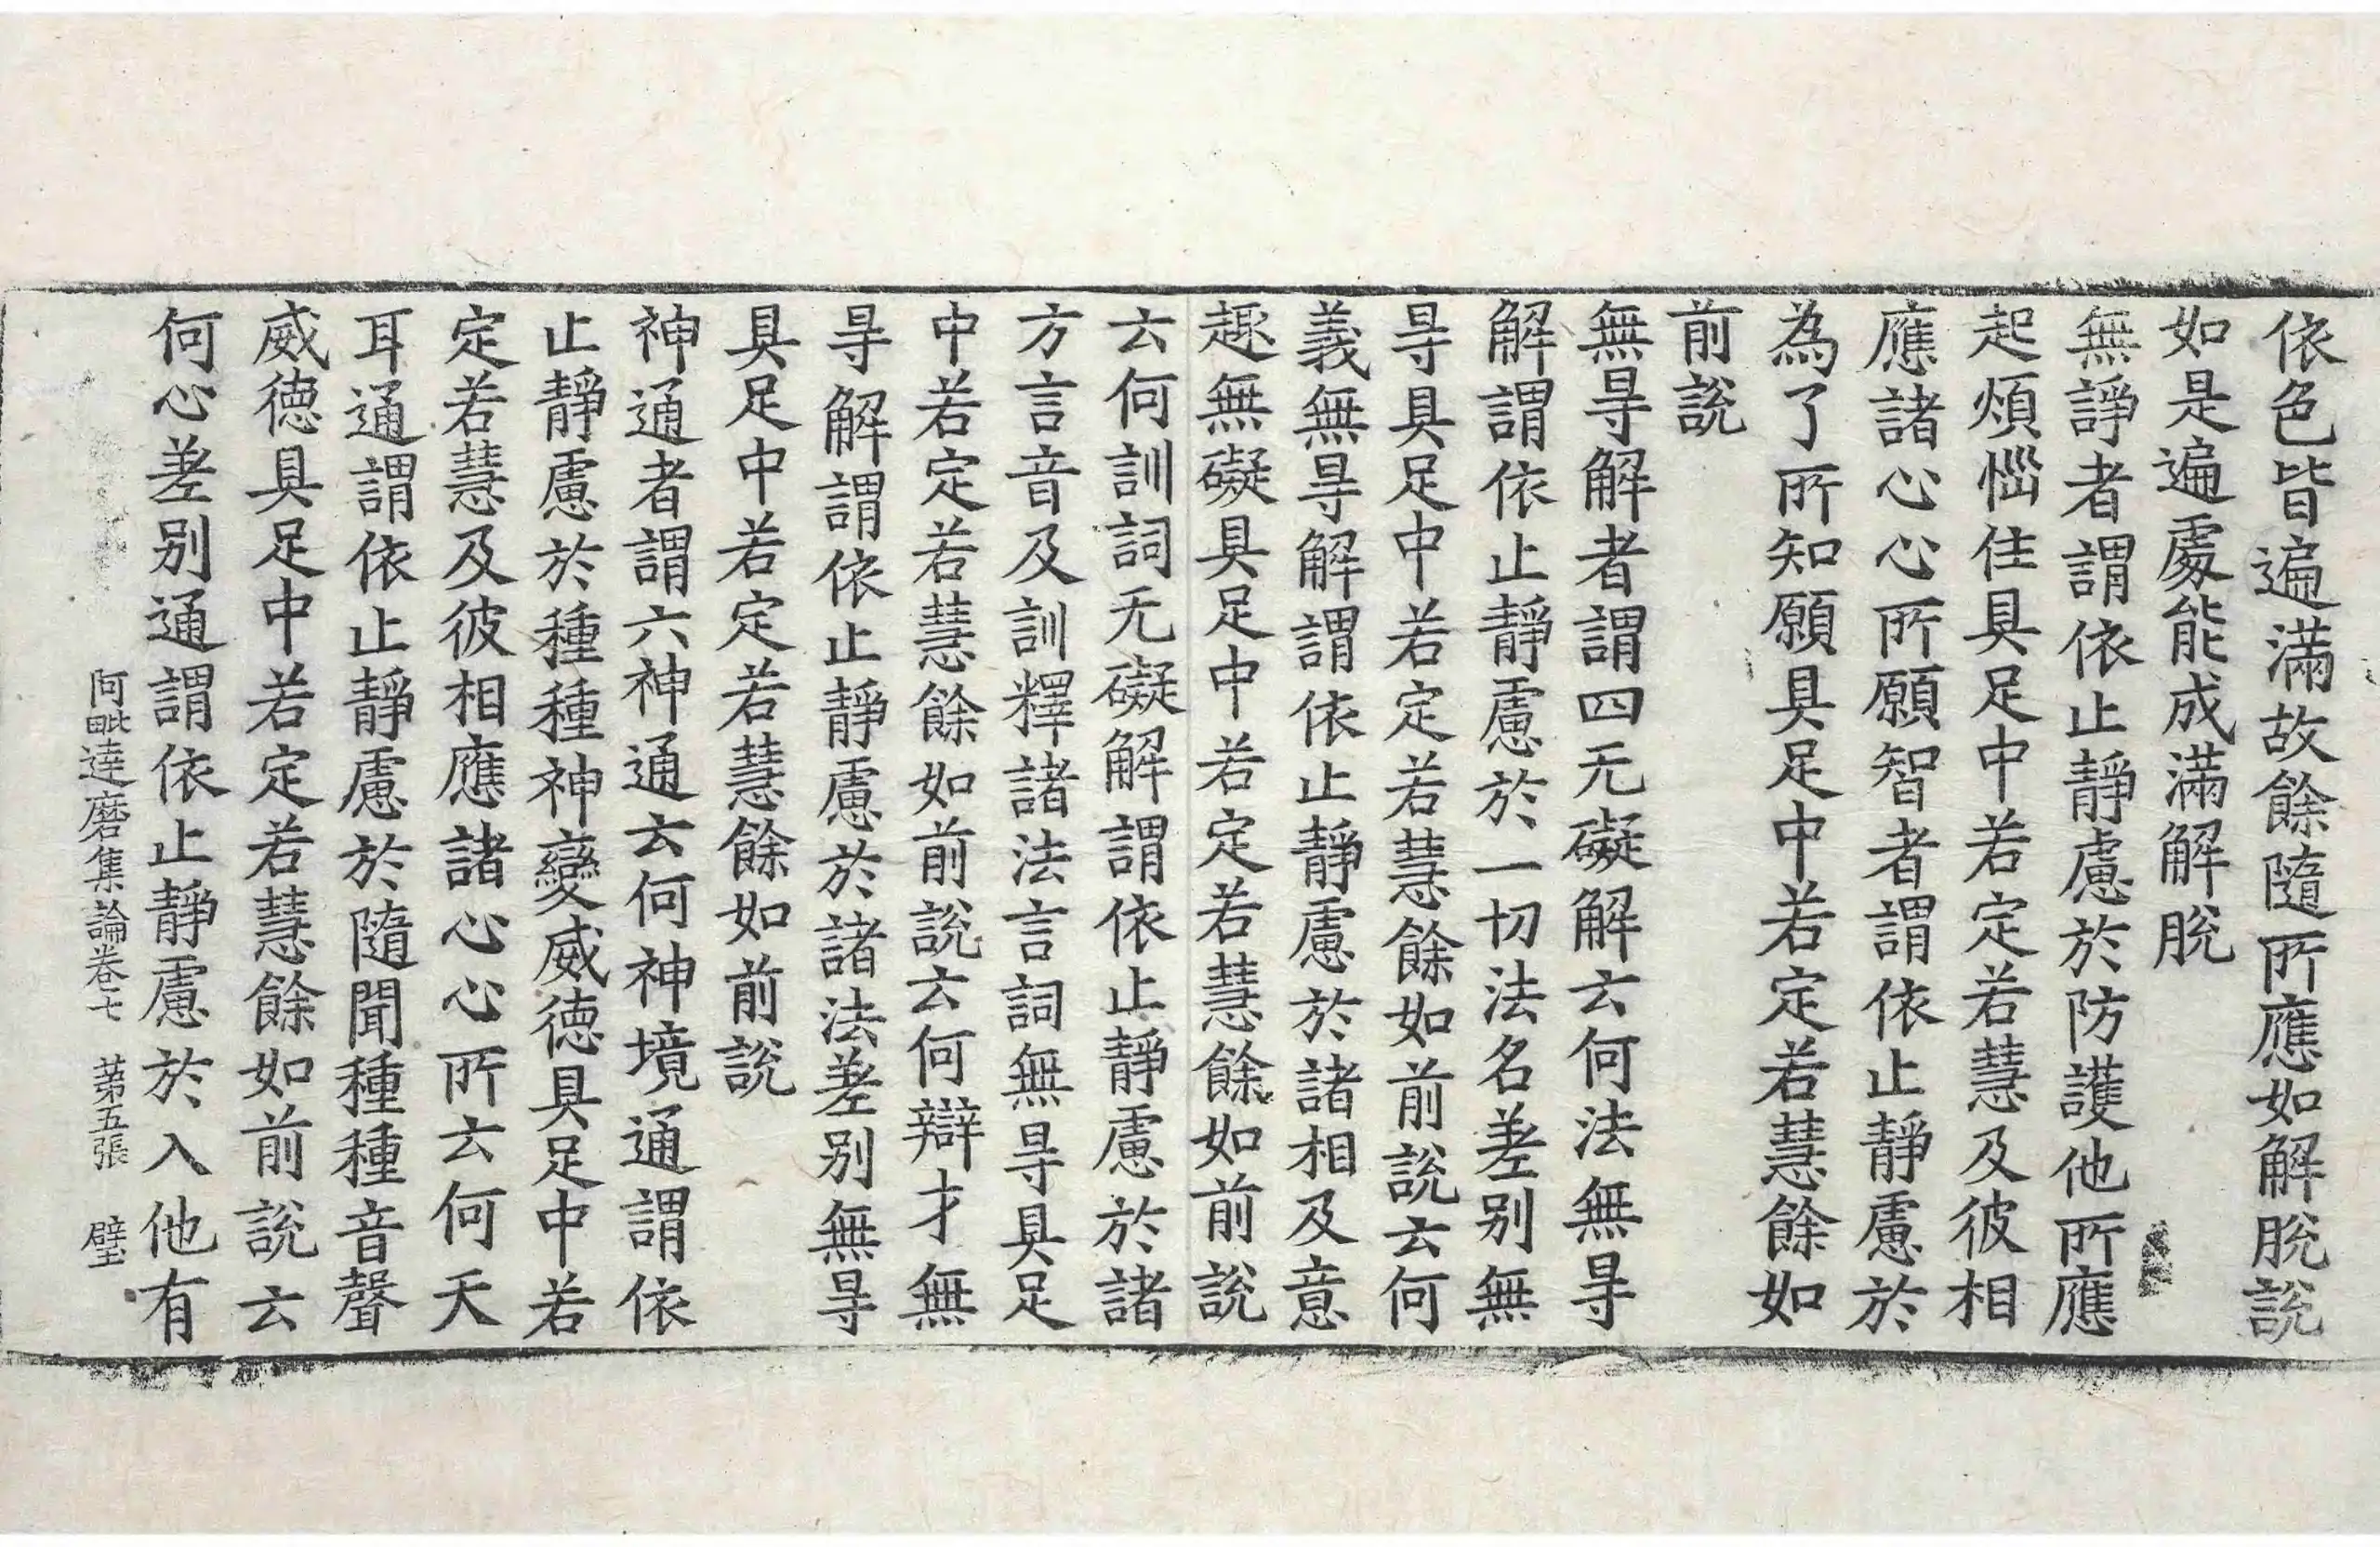 依色皆遍滿故餘隨所應如解脫說
如是遍處能成滿解脫
無諍者謂依止靜慮於防護他所應
起煩惱住具足中若定若慧及彼相
應諸心心所願智者謂依止靜慮於
為了所知願具足中若定若慧餘如
前說
無㝵解者謂四无礙解云何法無㝵
解謂依止靜慮於一切法名差別無
㝵具足中若定若慧餘如前說云何
義無㝵解謂依止靜慮於諸相及意
趣無礙具足中若定若慧餘如前說
云何訓詞无礙解謂依止靜慮於諸
方言音及訓釋諸法言詞無㝵具足
中若定若慧餘如前說云何辯才無
㝵解謂依止靜慮於諸法差別無㝵
具足中若定若慧餘如前說
神通者謂六神通云何神境通謂依
止靜慮於種種神變威德具足中若
定若慧及彼相應諸心心所云何天
耳通謂依止靜慮於隨聞種種音聲
威德具足中若定若慧餘如前說云
何心差別通謂依止靜慮於入他有
阿毗達磨集論卷七 第五張 璧